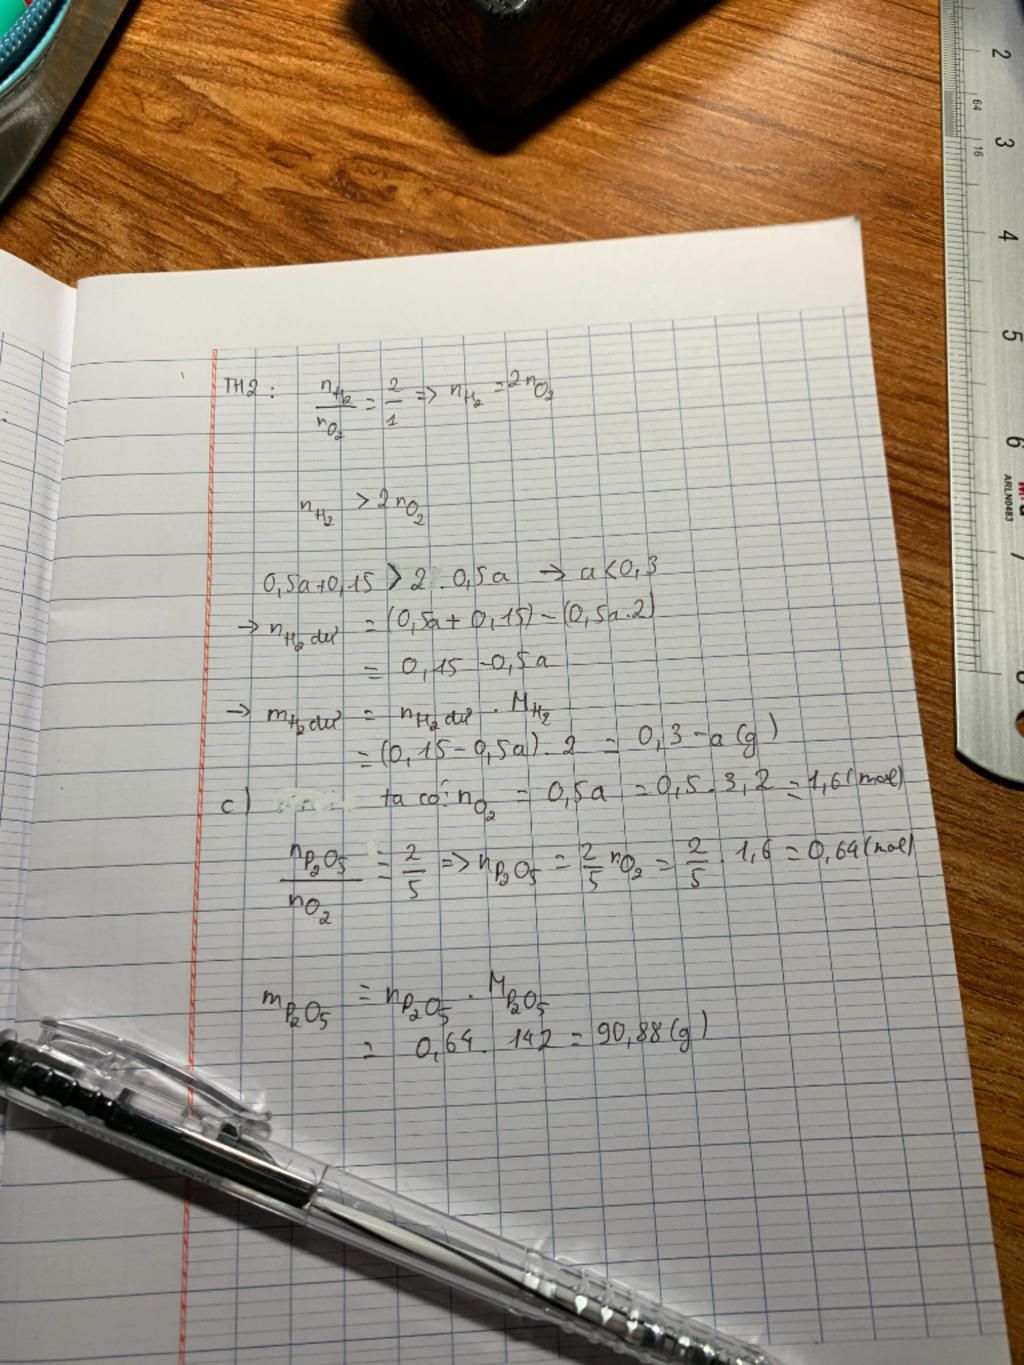 2
64
16
3
4
5
6
ARLN0483
7
8
TH2 : n_H₂ / n_O₂ = 2/1 => n_H₂ = 2n_O₂
n_H₂ > 2n_O₂
0,5a+0,15 > 2 . 0,5a → a<0,3
→ n_H₂ dư = (0,5a + 0,15) - (0,5a.2)
= 0,15 - 0,5a
→ m_H₂ dư = n_H₂ dư . M_H₂
= (0,15-0,5a) . 2 = 0,3-a (g)
c) ta có: n_O₂ = 0,5a = 0,5 . 3,2 = 1,6 (mol)
n_P₂O₅ / n_O₂ = 2/5 => n_P₂O₅ = 2/5 n_O₂ = 2/5 . 1,6 = 0,64 (mol)
m_P₂O₅ = n_P₂O₅ . M_P₂O₅
= 0,64 . 142 = 90,88 (g)